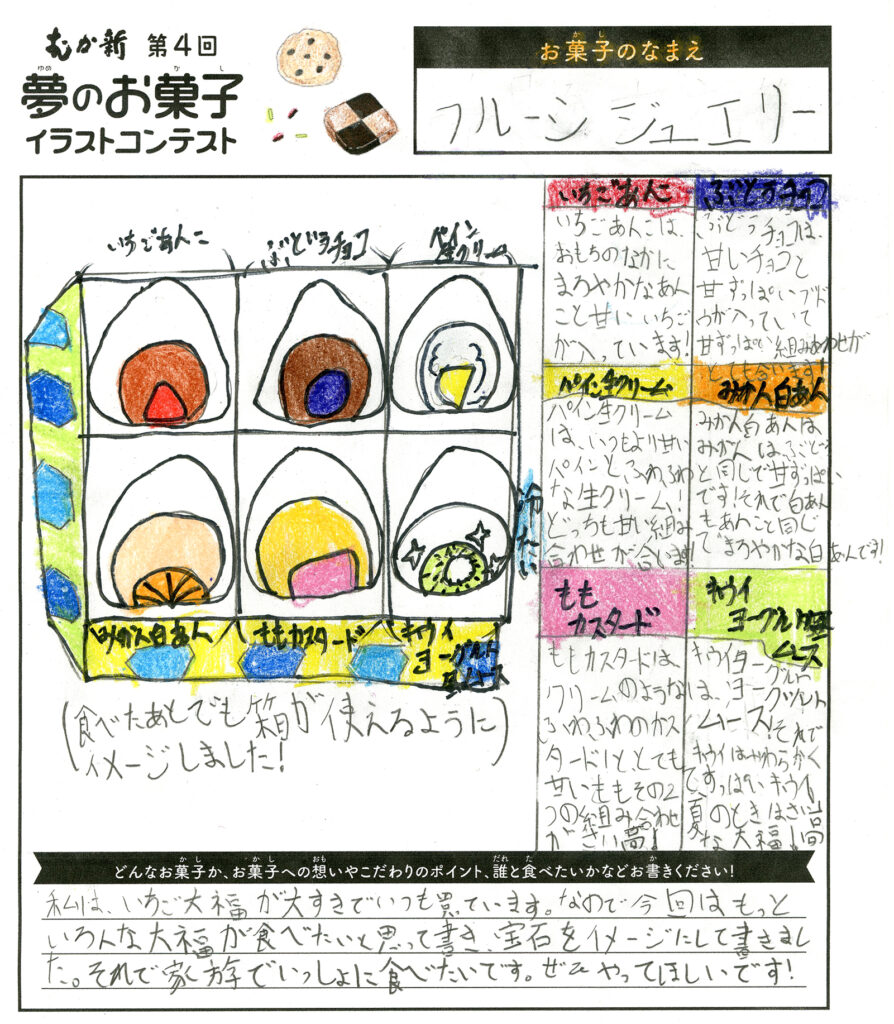 むか新 第4回
夢のお菓子
ゆめ かし
イラストコンテスト
お菓子のなまえ
かし
フルーシ ジュエリー
いちごあんこ
ぶどうチョコ
パイン
生クリーム
みかん白あん
ももカスタード
キウイ
ヨーグルト
風ムース
冷たい
(食べたあとでも箱が使えるように
イメージしました!)
いちごあんこ
いちごあんこは、
おもちのなかに
まろやかなあん
こと甘いいちご
が入っています!
ぶどうチョコ
ぶどうチョコは、
甘いチョコと
甘ずっぱいブド
ウが入っていて
甘ずっぱい組みあわせが
とても合います!
パイン生クリーム
パイン生クリーム
は、いつもより甘い
パインとふわふわ
な生クリーム!
どっちも甘い組み
合わせが合います!
みかん白あん
みかん白あんは
みかんは、ぶどう
と同じで甘ずっぱい
です!それで白あん
もあんこと同じ
でまろやかな白あんです!
もも
カスタード
ももカスタードは、
クリームのような
ふわふわのカス
タード!と、とても
甘いももその2
つの組み合わせ
がさい高!
キウイ
ヨーグルト風
ムース
キウイヨーグルト
は、ヨークグルト
ムース!それで
キウイはやわらかく
てすっぱいキウイ!
夏のときはさい高
な大福!
どんなお菓子か、お菓子への想いやこだわりのポイント、誰と食べたいかなどお書きください!
かし かし おも だれ た か
私は、いちご大福が大すきでいつも買っています。なので今回はもっと
いろんな大福が食べたいと思って書き、宝石をイメージにして書きまし
た。それで家族でいっしょに食べたいです。ぜひやってほしいです!